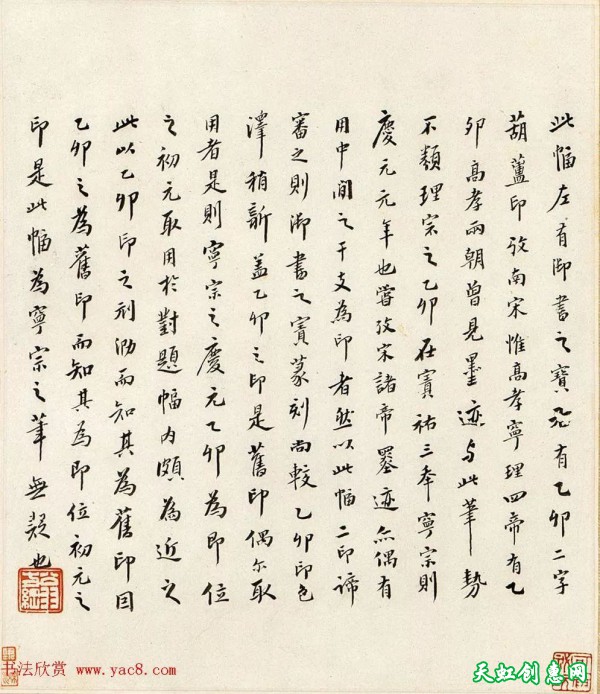 此幅左有御書之寶有乙卯二字
葫蘆印攷南宋惟高孝寧理四帝有乙
卯高孝兩朝曾見墨迹与此筆勢
不類理宗之乙卯在寶祐三年寧宗則
慶元元年也嘗攷宋諸帝墨迹亦偶有
用中間之干支為印者然以此幅二印諦
審之則御書之寶篆刻尚較乙卯印色
澤稍新蓋乙卯之印是舊印偶尔取
用者是則寧宗之慶元乙卯為即位
之初元取用於對題幅内頗為近之
此以乙卯印之刓泐而知其為舊印因
乙卯之為舊印而知其為即位初元之
印是此幅為寧宗之筆無疑也
翁方綱
书法欣赏 www.yac8.com
天虹创惠网